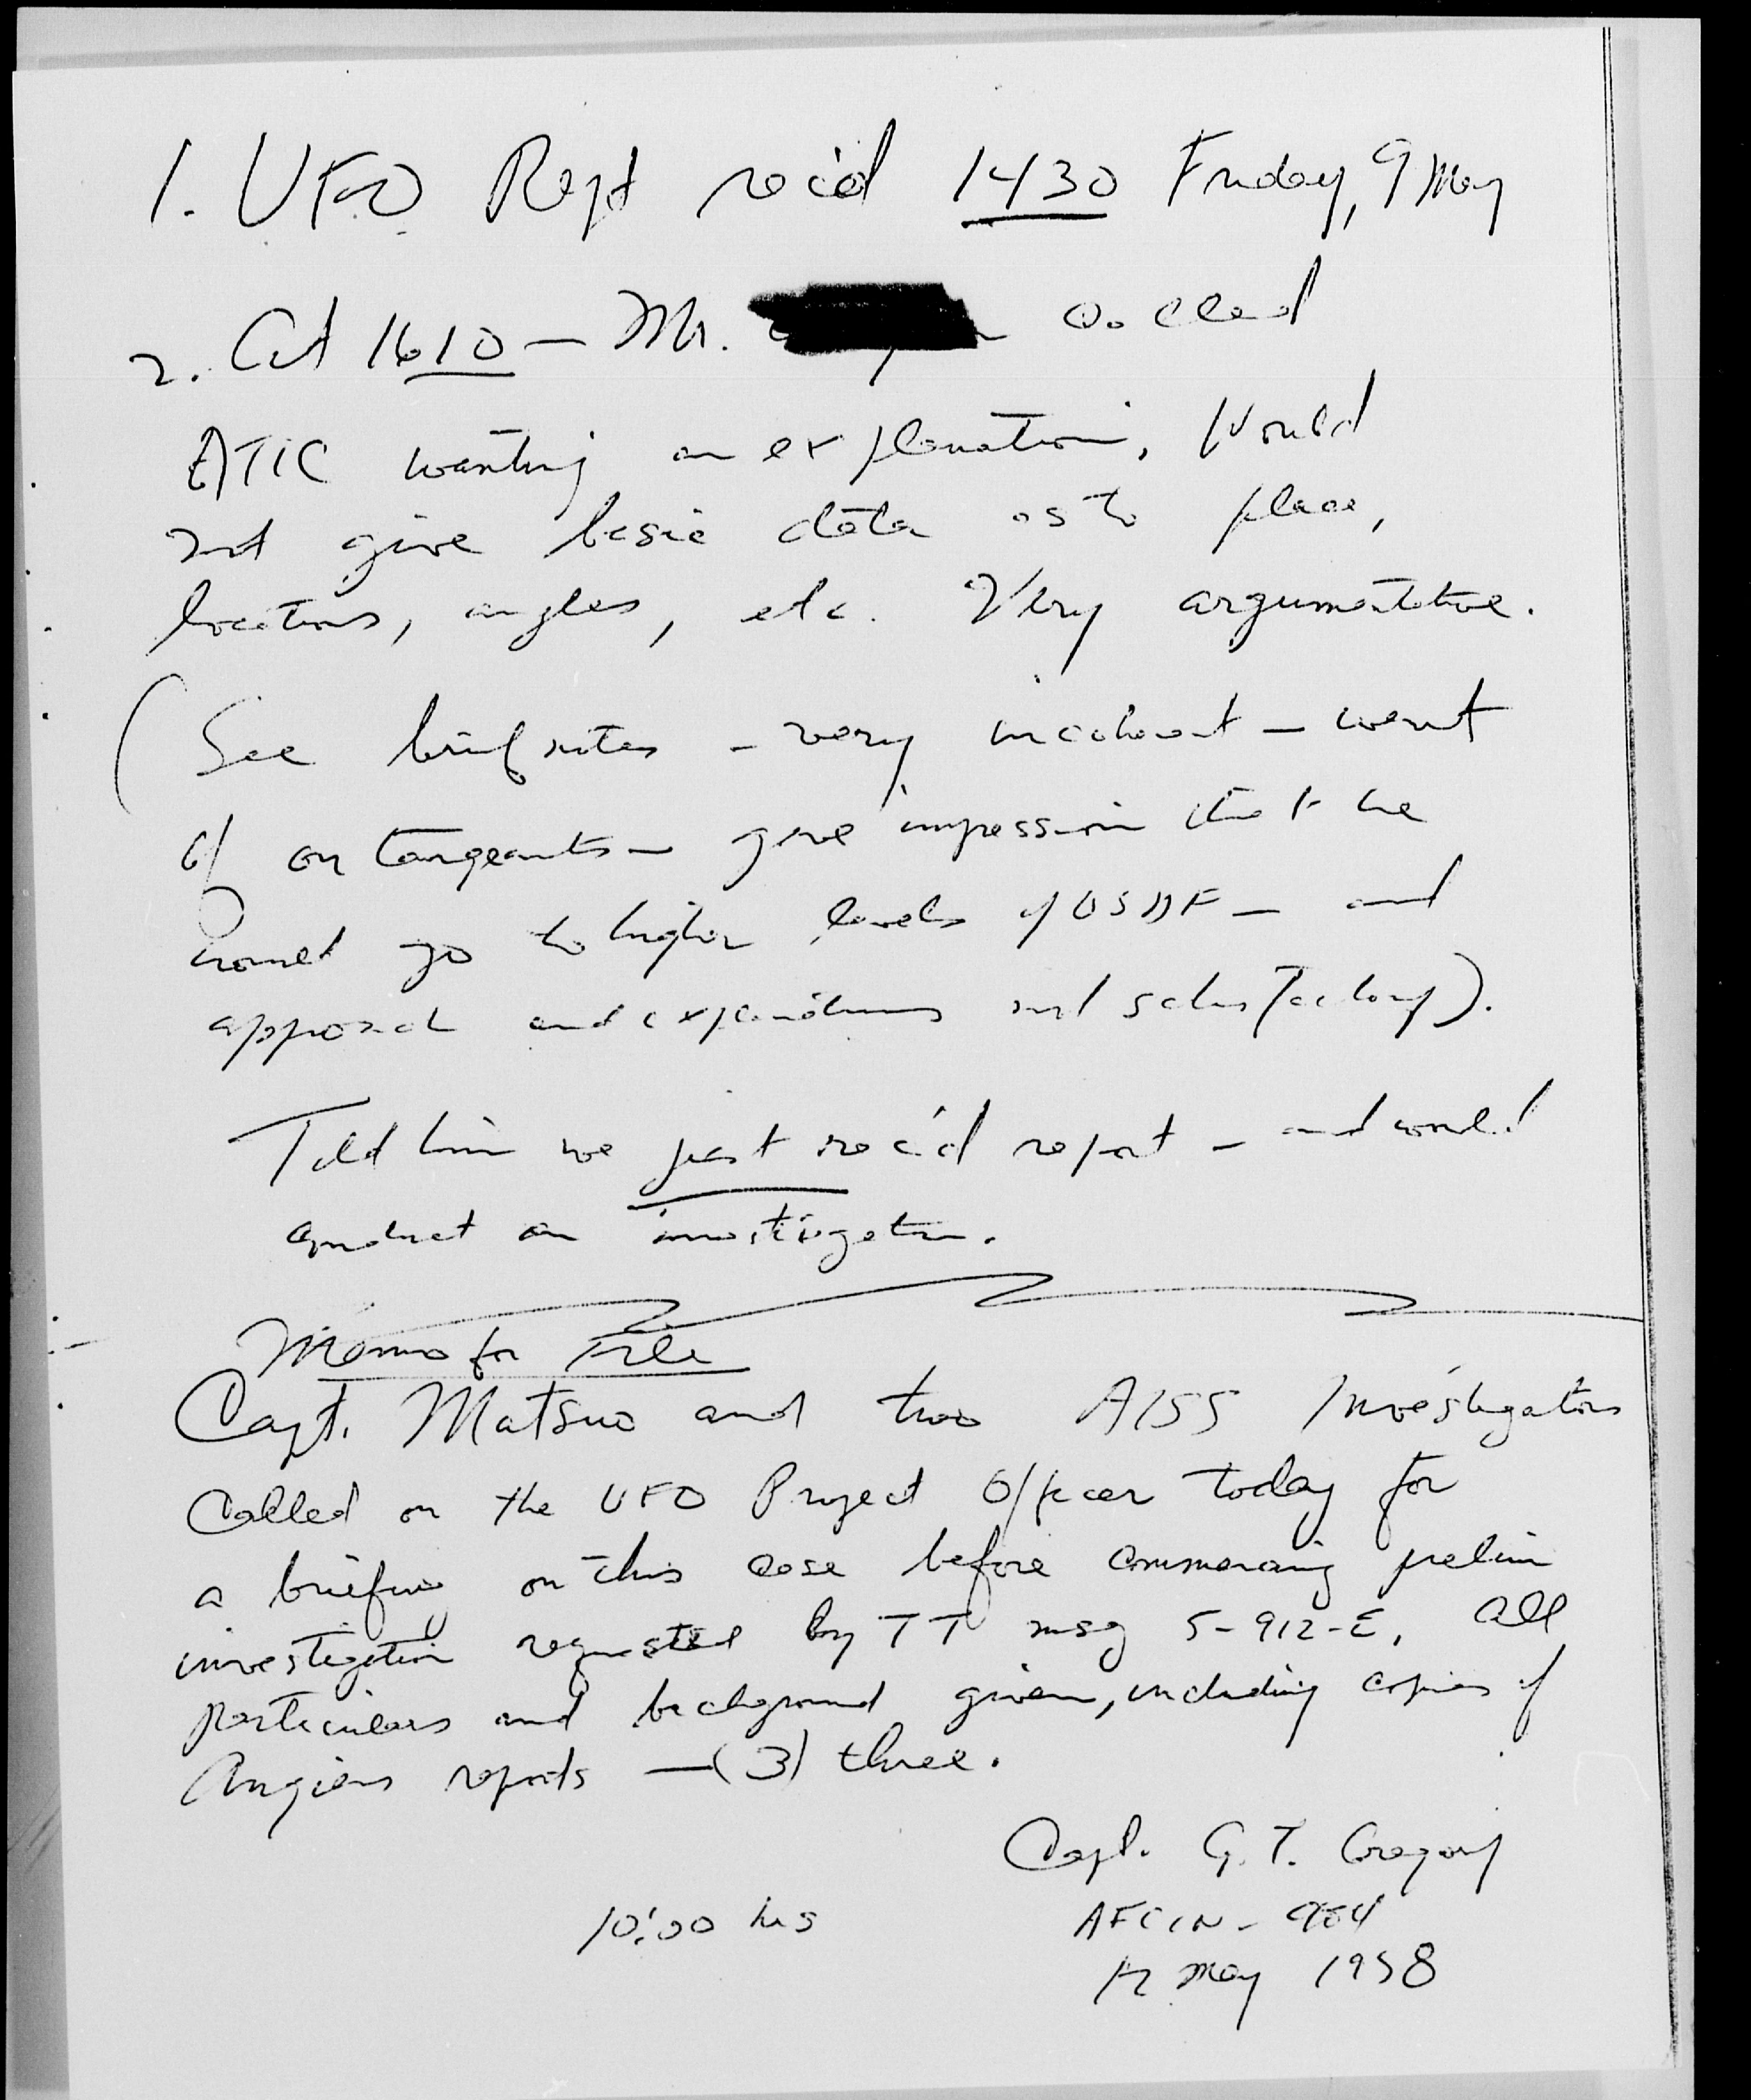 1. UFO Rept rec'd 1430 Friday, 9 May
2. At 1610 — Mr. called
ATIC wanting an explanation, Would
not give basic data as to place,
locations, angles, etc. Very argumentative.
(See brief notes - very incoherent - went
off on tangeants — gave impression that he
would go to higher levels of USAF — and
approach and explanations not satisfactory).
Told him we just rec'd report - and would
conduct an investigation.
Memo for File
Capt. Matsuo and two AISS Investigators
Called on the UFO Project Officer today for
a briefing on this case before commencing prelim
investigation requested by TT msg 5-912-E. All
particulars and background given, including copies of
reports — (3) three.
Capt. G. T. Gregory
10:00 hrs AFCIN-
12 May 1958